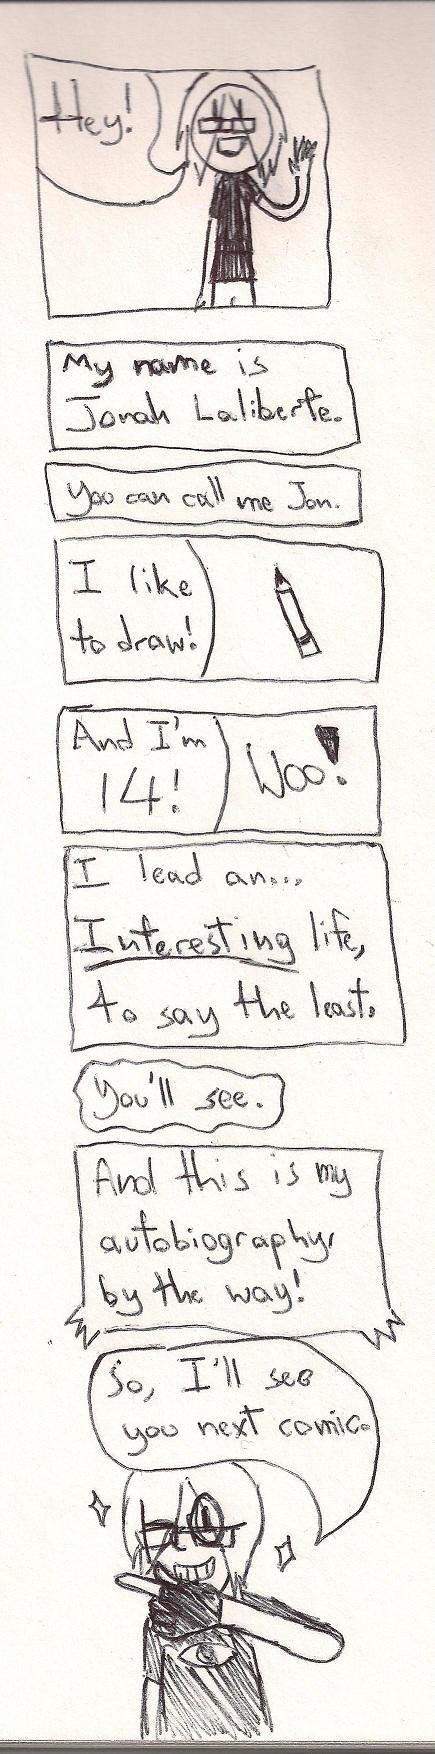 Hey!
My name is
Jonah Laliberte.
You can call me Jon.
I like
to draw!
And I'm
14!
Woo!
I lead an...
Interesting life,
to say the least.
You'll see.
And this is my
autobiography,
by the way!
So, I'll see
you next comic.